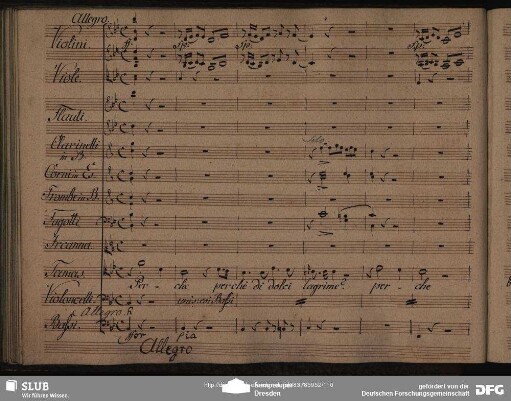 Allegro
Violini
Viole
Flauti.
Clarinetti
in B
Solo
Corni in Es
Trombe in B
Fagotti
Ircanna
Tamas.
Per- che perchè di dolci lagrime? per- che
Violoncelli.
unis coi Bassi
Allegro
Bassi.
for pia
Allegro
SLUB
Wir führen Wissen.
Dresden
gefördert von der
Deutschen Forschungsgemeinschaft
DFG